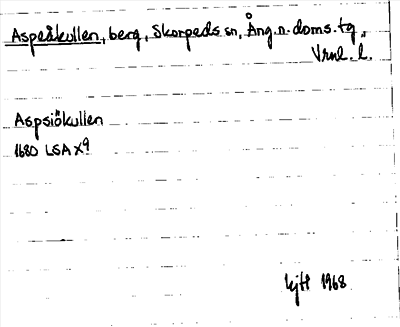 Aspeåkullen, berg, Skorpeds sn, Ång.n.doms.tg,
Vrnl. l.
Aspsiökullen
1680 LSA X9
1968